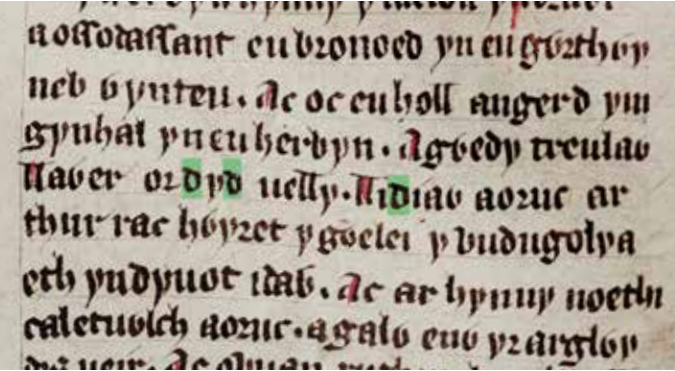 aossodassant eu bronoed yn eu gỽrthỽy
neb ỽynteu. Ac oc eu holl angerd ym
gynhal yn eu herbyn. Agỽedy treulaỽ
llaỽer oꝛ dyd uelly. Llidiaỽ aoruc ar
thur rac hỽyꝛet ygỽelei y budugolya
eth yn dyuot idaỽ. Ac ar hynny noethi
caletuỽlch aoruc. agalỽ enỽ yꝛ arglỽy
ueir. Ac